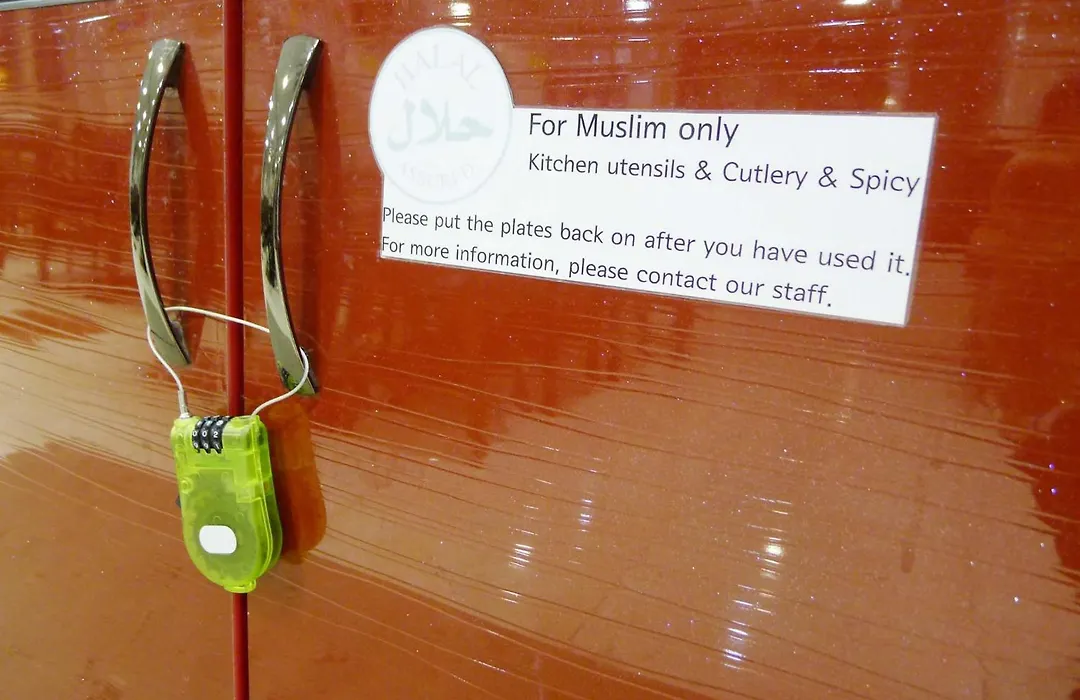 HALAL
حلال
For Muslim only
Kitchen utensils & Cutlery & Spicy
Please put the plates back on after you have used it.
For more information, please contact our staff.